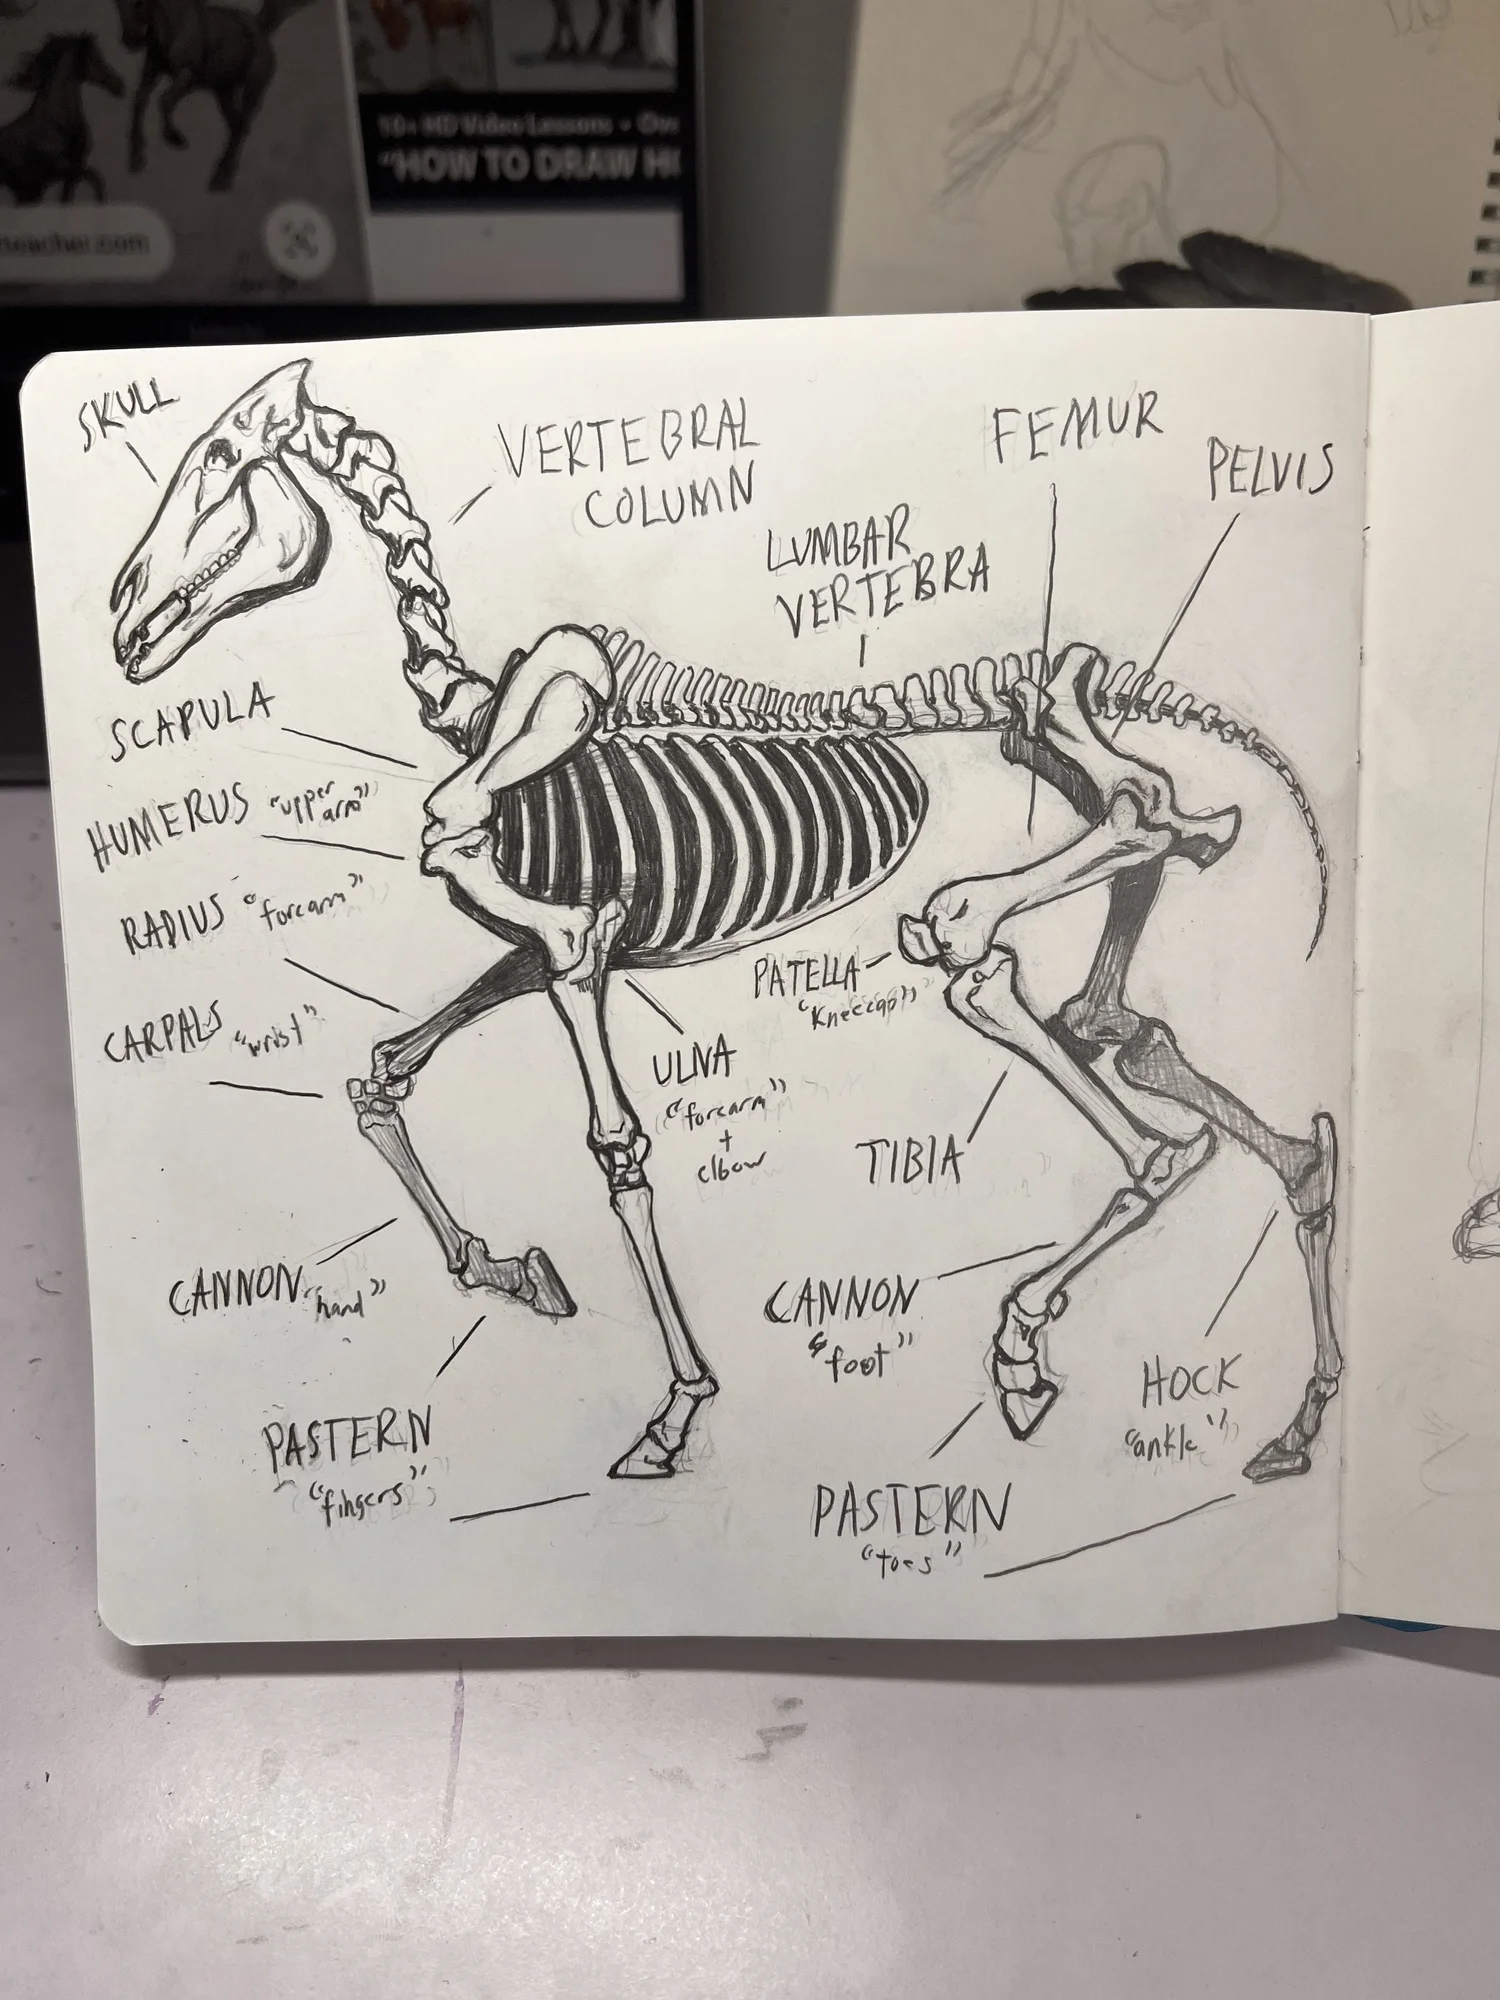 10+ HD Video Lessons • Ove
"HOW TO DRAW HO
teacher.com
SKULL
VERTEBRAL
COLUMN
FEMUR
PELVIS
LUMBAR
VERTEBRA
SCAPULA
HUMERUS "upper
arm"
RADIUS "forearm"
CARPALS "wrist"
PATELLA
"Kneecap"
ULNA
"forearm"
+
elbow
TIBIA
CANNON "hand"
CANNON
"foot"
HOCK
"ankle"
PASTERN
"fingers"
PASTERN
"toes"